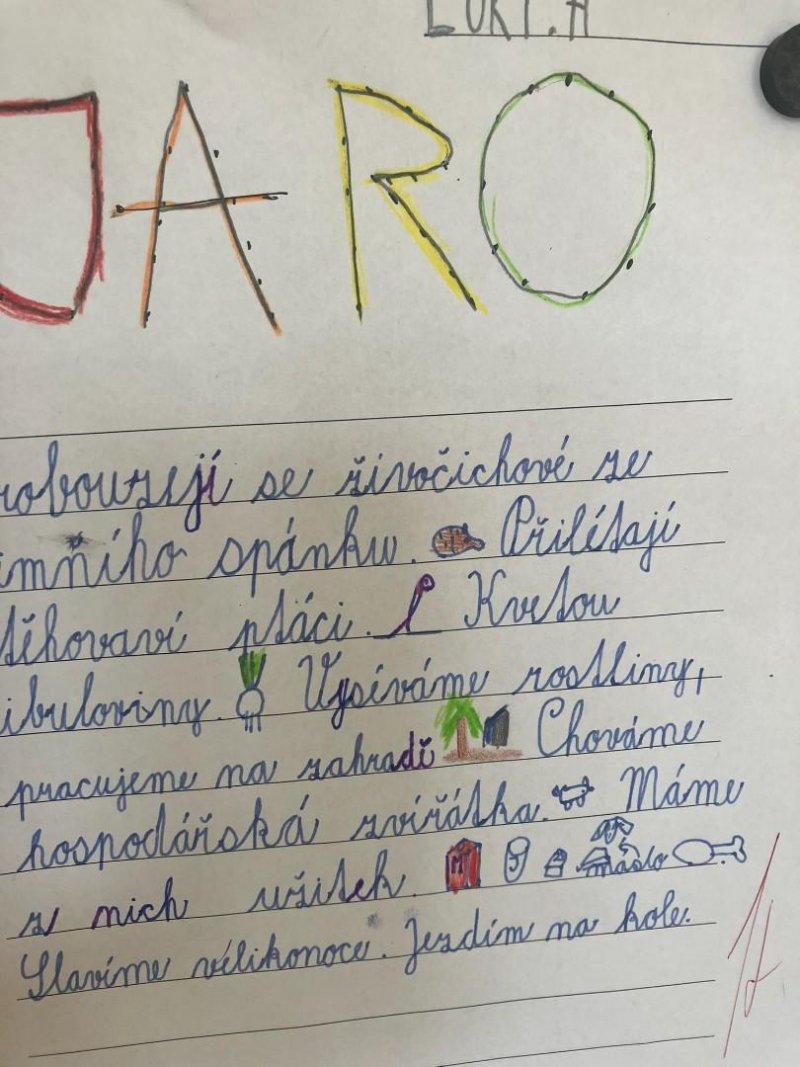 LUKI.A
JARO
robouzejí se živočichové ze
imního spánku. Přilétají
těhovaví ptáci. Kvetou
ibuloviny. Vysíváme rostliny,
pracujeme na zahradě Chováme
hospodářská zvířátka. Máme
z nich užitek. máslo
Slavíme vélikonoce. Jezdím na kole.